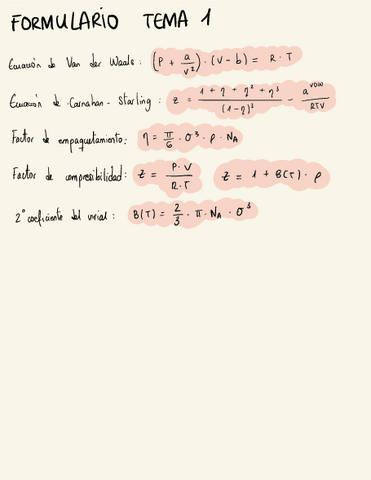 FORMULARIO TEMA 1
Ecuación de Van der Waals: (P + a/v²) · (v - b) = R · T
Ecuación de Carnahan - Starling: z = (1 + η + η² + η³)/(1 - η)³ - a^VDW/RTV
Factor de empaquetamiento: η = π/6 · σ³ · ρ · N_A
Factor de compresibilidad: z = P · V/R · T z = 1 + B(T) · ρ
2º coeficiente del virial: B(T) = 2/3 · π · N_A · σ³